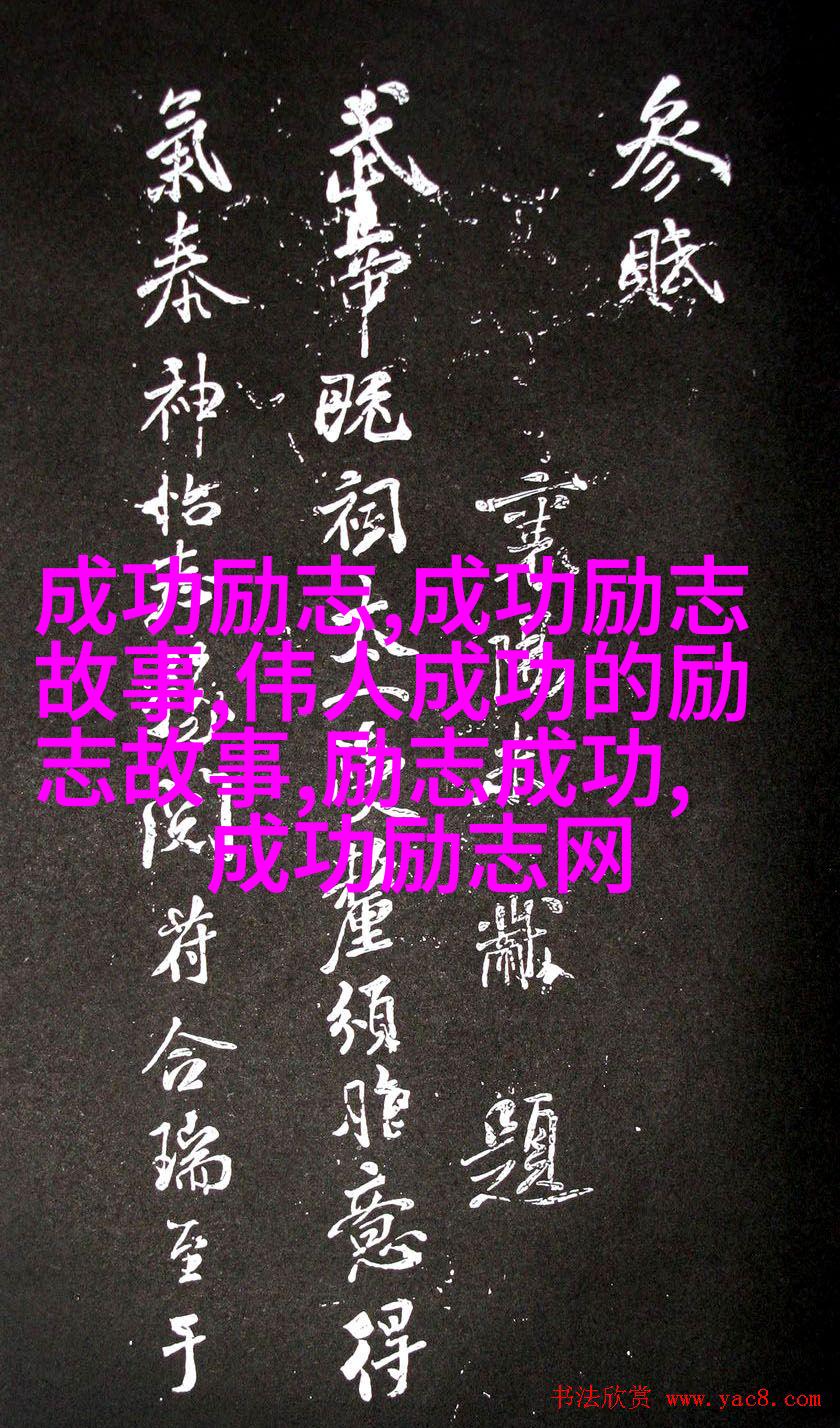 參賦
襄陽米黻 題
武帝既祠太一受釐頒胙意得
氣泰神怡春
符合瑞至于
成功励志,成功励志
故事,伟人成功的励
志故事,励志成功,
成功励志网
书法欣赏 www.yac8.com